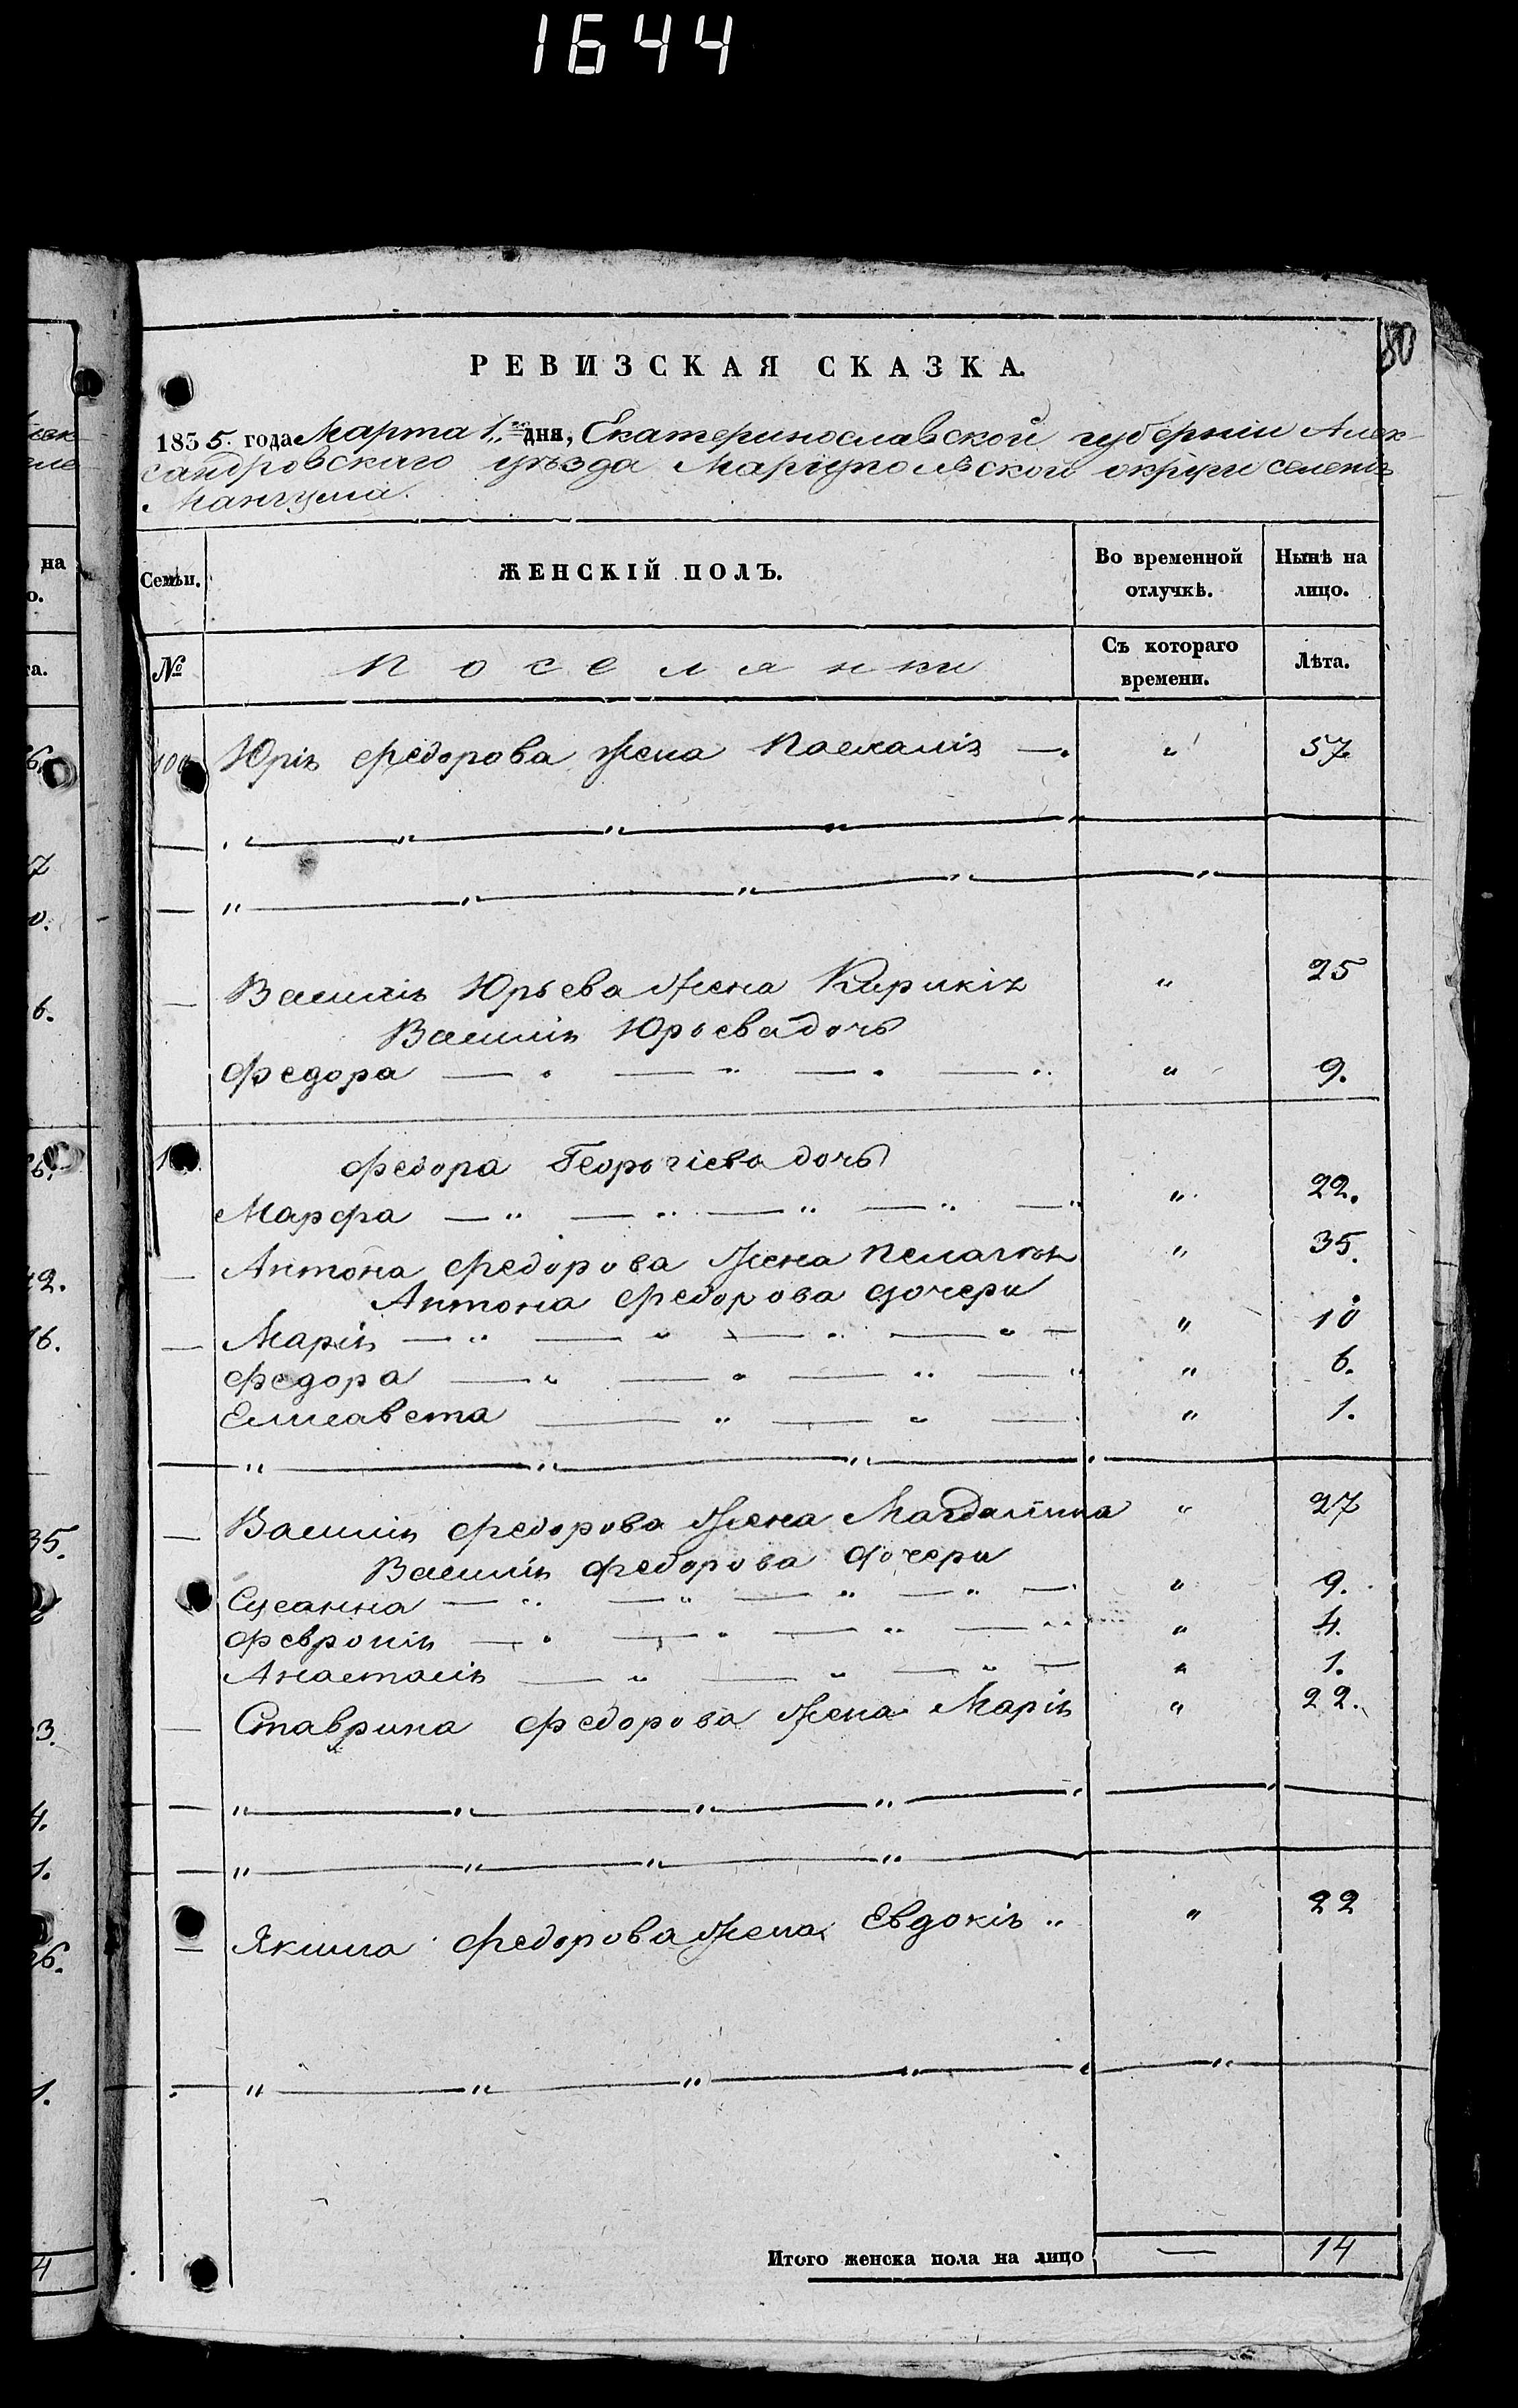 1644
80
РЕВИЗСКАЯ СКАЗКА.
1835. года Марта 1.го дня, Екатеринославской губерніи Алек-
сандровскаго уѣзда Мариупольской округи селенія
Мангуша.
Семьи. ЖЕНСКІЙ ПОЛЪ. Во временной отлучкѣ. Нынѣ на лицо.
№ Поселянки Съ котораго времени. Лѣта.
100 Юрія Федорова жена Паскалія — " 57
Василія Юрьева жена Кирикія " 25
Василія Юрьева дочь
Федора — " — " — " — " " 9.
Федора Георгіева дочь
Марфа — " — " — " — " — " " 22.
Антона Федорова жена Пелагія " 35.
Антона Федорова дочери
Марія — " — " — " — " — " 10
Федора — " — " — " — " " 6.
Елисавета — " — " — " 1.
Василія Федорова жена Магдалина " 27
Василія Федорова дочери
Сусанна — " — " — " — " — " 9.
Февронія — " — " — " — " " 4.
Анастасія — " — " — " — " 1.
Ставрина Федорова жена Марія " 22.
Якима Федорова жена Евдокія " " 22
Итого женска пола на лицо — 14